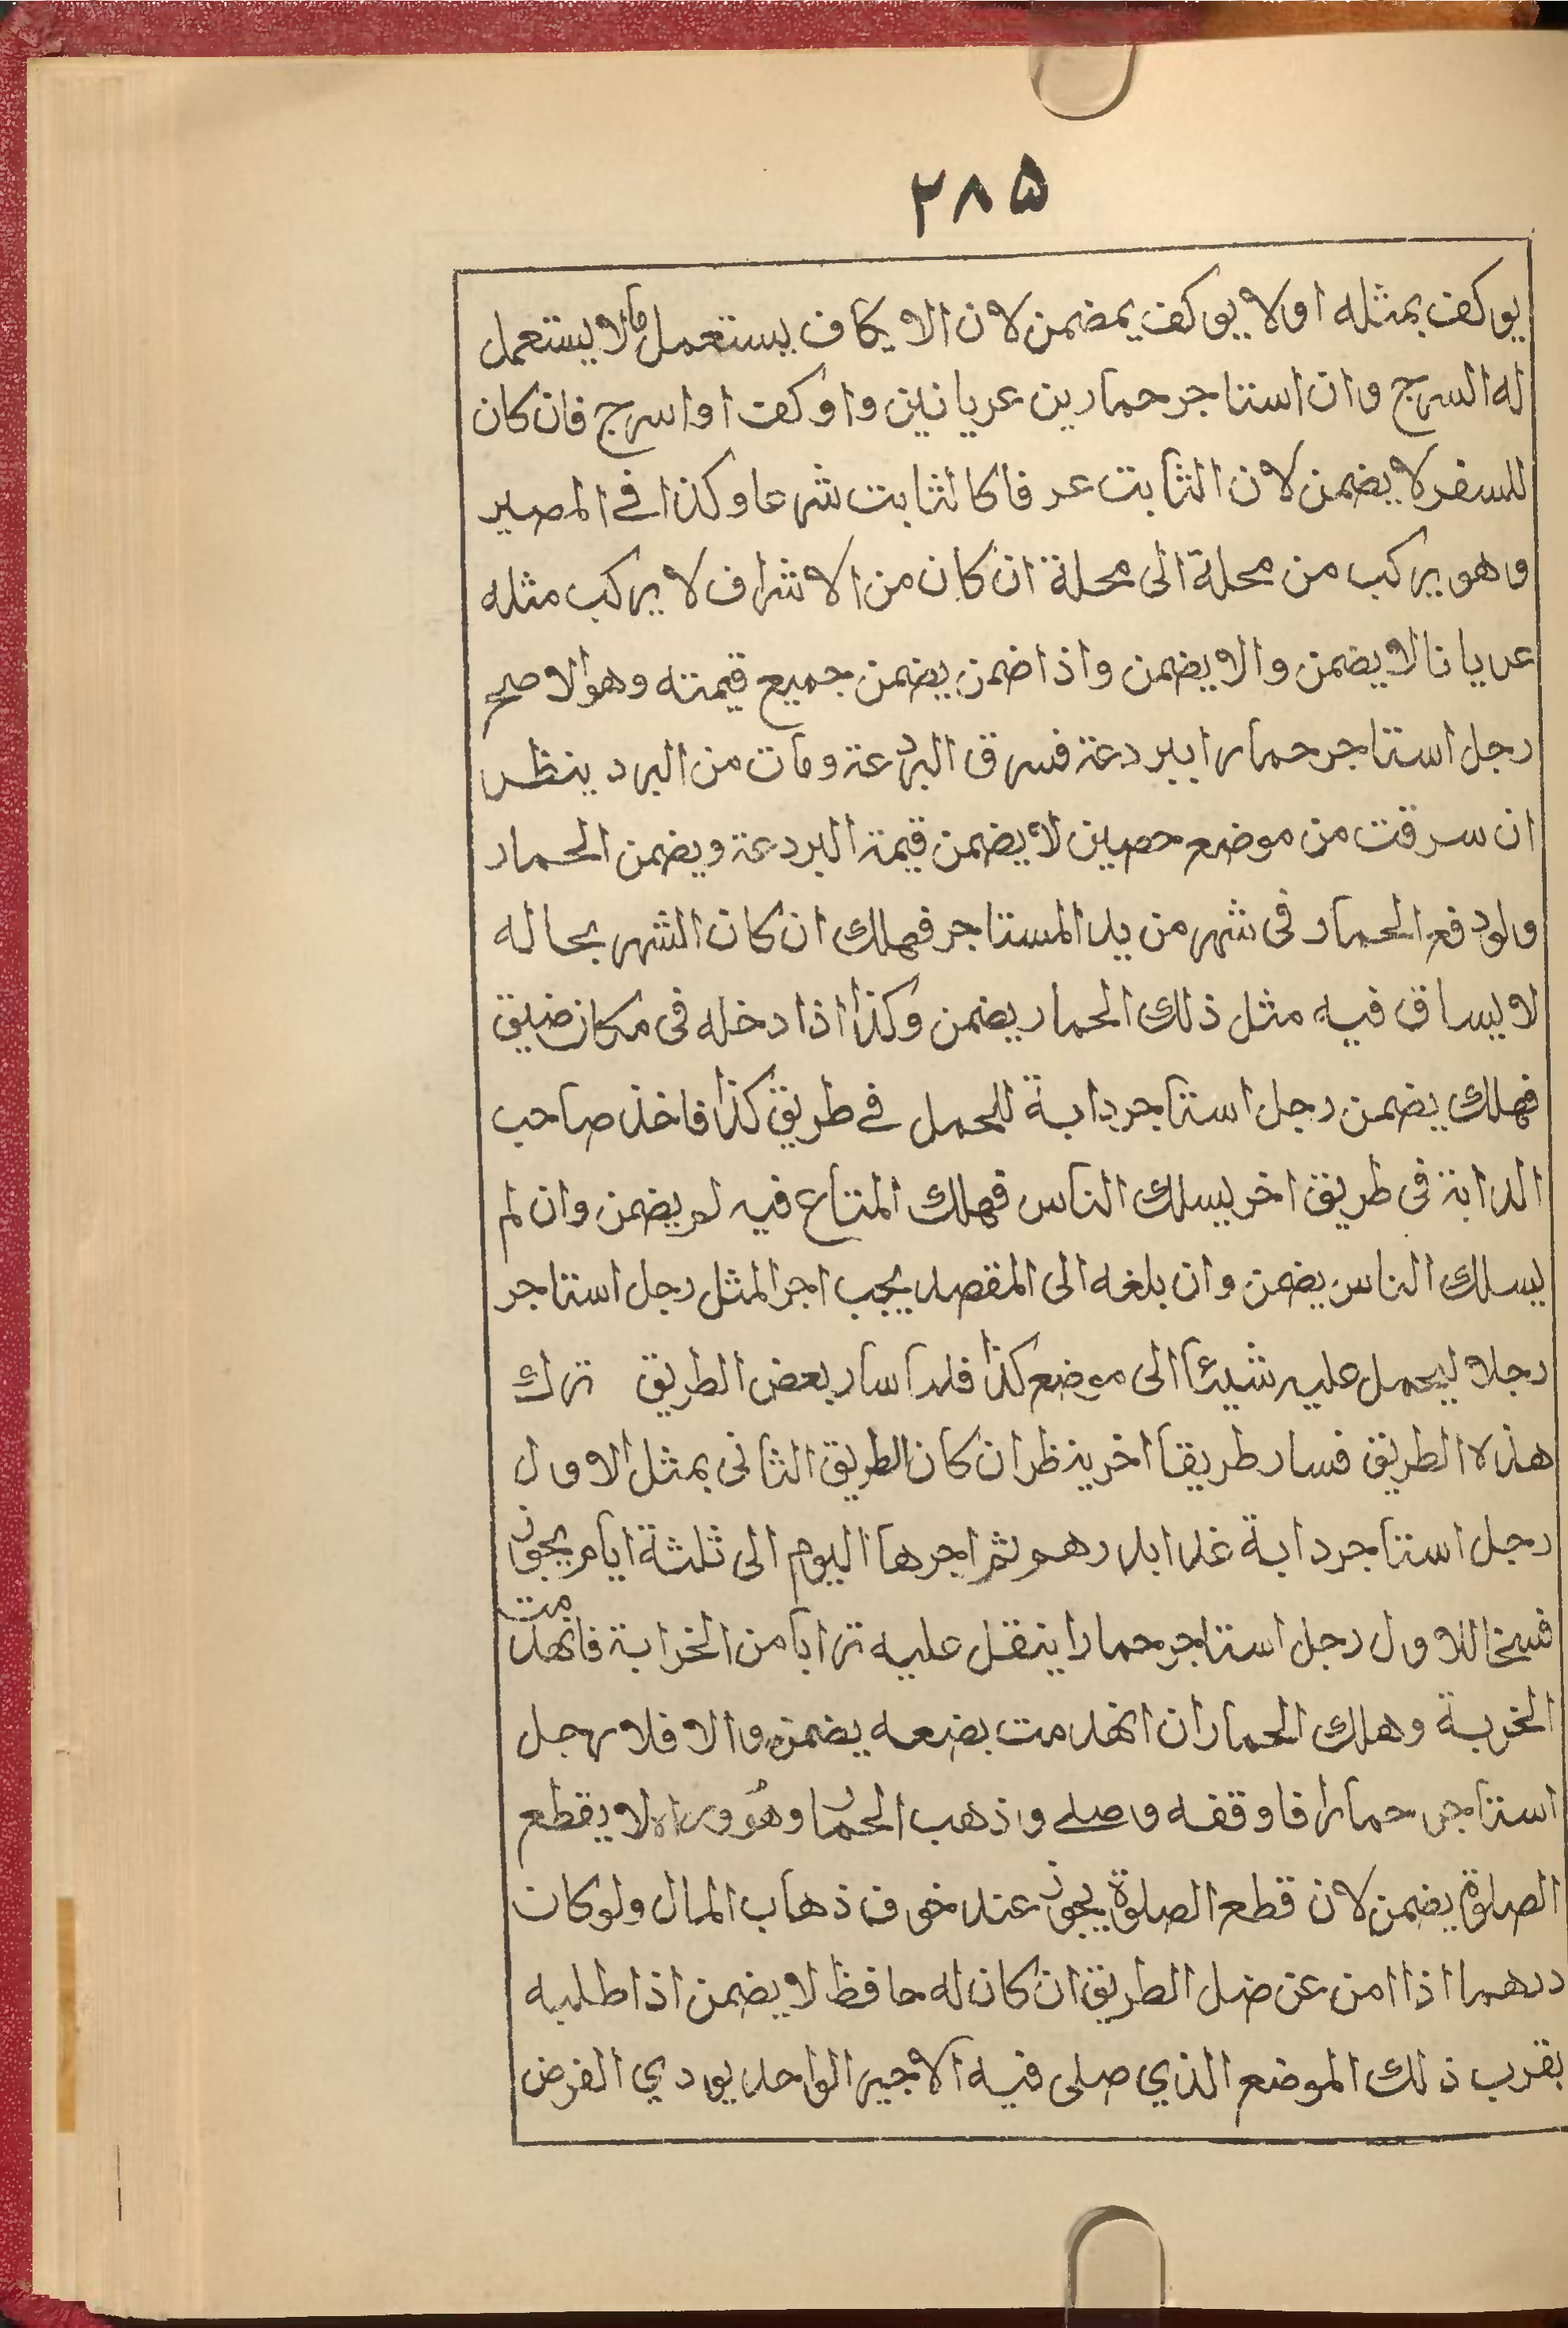 ٢٨٥
يوكف بمثله اولا يوكف يمضمن لان الايكاف يستعمل ما لا يستعمل
له السرج وان استاجر حمارين عريانين واوكفت او اسرج فان كان
للسفر لا يضمن لان الثابت عرفا كالثابت شرعا وكذا فى المصير
وهو يركب من محلة الى محلة ان كان من الاشراف لا يركب مثله
عريانا لا يضمن والا يضمن واذا ضمن يضمن جميع قيمته وهو الاصح
رجل استاجر حمارا ببردعة فسرق البردعة ومات من البرد ينظر
ان سرقت من موضع حصين لا يضمن قيمة البردعة ويضمن الحمار
ولو دفع الحمار فى شهر من يد المستاجر فهلك ان كان الشهر بحاله
لا يساق فيه مثل ذلك الحمار يضمن وكذا اذا دخله فى مكان ضيق
فهلك يضمن رجل استاجر دابة للحمل فى طريق كذا فاخذ صاحب
الدابة فى طريق اخر يسلك الناس فهلك المتاع فيه لم يضمن وان لم
يسلك الناس يضمن وان بلغه الى المقصد يجب اجر المثل رجل استاجر
رجلا ليحمل عليه شيئا الى موضع كذا فلما سار بعض الطريق ترك
هذه الطريق فسار طريقا اخر ينظر ان كان الطريق الثانى بمثل الاول
رجل استاجر دابة غدا بدرهم ثم اجرها اليوم الى ثلثة ايام يجوز
فسخا للاول رجل استاجر حمارا ينقل عليه ترابا من الخرابة فانهدمت
الخربة وهلك الحمار ان انهدمت بضعه يضمن والا فلا رجل
استاجر حمارا فاوقفه وصلى وذهب الحمار وهو وراه لا يقطع
الصلوة يضمن لان قطع الصلوة يجوز عند خوف ذهاب المال ولو كان
درهما اذا امن عن ضل الطريق ان كان له حافظ لا يضمن اذا طلبه
بقرب ذلك الموضع الذي صلى فيه الاجير الواحد يودي الفرض